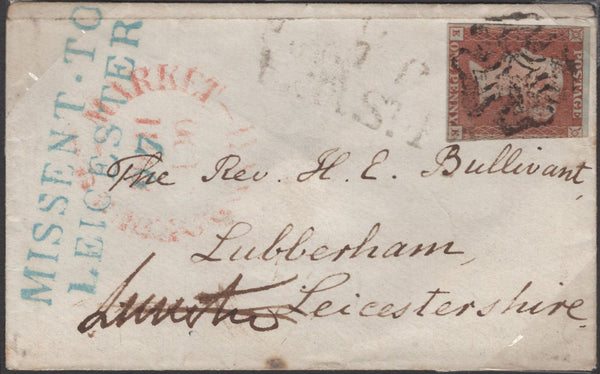 MISSENT·TO
LEICESTER
MARKET
POSTAGE
ONE PENNY
E E
The Rev. H. E. Bullivant,
Lubberham,
Leicestershire.